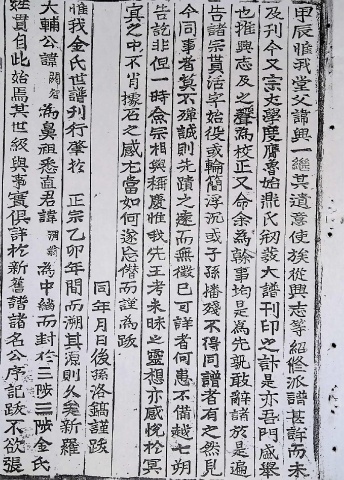 甲辰惟我堂父諱興一繼其遺意使族從興志等紹修派譜甚詳而未
及刊今又宗丈學度膺魯始鼎氏刱發大譜刊印之計是亦吾門盛舉
也推興志及之馨為校正又命余為幹事均是為先觀敢辭諸於是遍
告諸宗貰活字始役或輪簡浮沉或子孫播殘不得同譜者有之然見
今同事者莫不殫誠則先蹟之遠而無徵已可詳者何患不備越七朔
告訖非但一時僉宗相與稱慶惟我先王考未昧之靈想亦感悅於冥
冥之中不肖據石之感尤當如何遂忘僭而謹為跋
同年月日後孫洛鎬謹跋
惟我金氏世譜刊行肇於 正宗乙卯年間而溯其源則久矣新羅
大輔公諱閼智為鼻祖悉直君諱 為中編而封於三陟三陟金氏
姓貫自此始焉其世級與事實俱詳於新舊譜諸名公序記跋不欲張